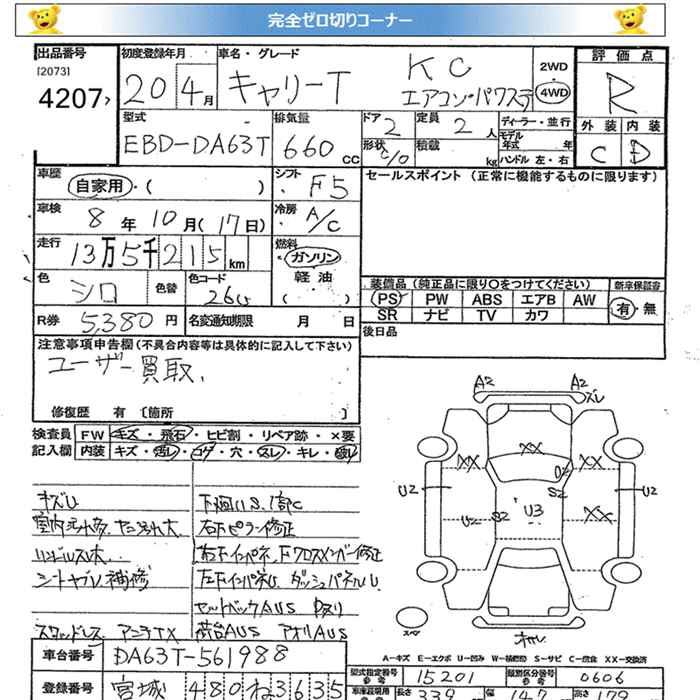 完全ゼロ切りコーナー
出品番号
[2073]
4207
初度登録年月
20 4月
車名・グレード
キャリーT KC
エアコン・パワステ
2WD
4WD
評価点
R
外装 内装
C D
型式
EBD-DA63T
排気量
660 cc
ドア
2
定員
2 人
形状
c/o
積載
kg
ディーラー・並行
モデル年式 年
ハンドル 左・右
車歴
自家用・( )
シフト
F5
セールスポイント (正常に機能するものに限ります)
車検
8年 10月(17日)
冷房
A/C
走行
13万5千215km
燃料
ガソリン
軽油
( )
色
シロ
色替
色コード
26U
装備品(純正品に限り○をつけてください)
新車保証書
PS PW ABS エアB AW
SR ナビ TV カワ
有・無
R券 5,380円
名変通知期限 月 日
後日品
注意事項申告欄(不具合内容等は具体的に記入して下さい)
ユーザー買取.
修復歴 有 〔箇所 〕
検査員
記入欄
FW キズ・飛石・ヒビ割・リペア跡・×要
内装 キズ・汚レ・コゲ・穴・スレ・キレ・破レ
キズU
下廻りS.1部C
室内汚れ多
右Fピラー修正
ハンドルスレ大
シートヤブレ補修
セットバックAUS
スタッドレス アンテナX
荷台AUS アオリAUS
A2 A2
ズレ
XX XX XX
U2 U2
S2 U3
XX
スペア
A-キズ E-エクボ U-凹み W-補修跡 S-サビ C-腐食 XX-交換済
車台番号 DA63T-561988
登録番号 宮城 480 ね 3635
型式指定番号
参考
15201
類別区分番号
参考
0606
長さ 339
高さ